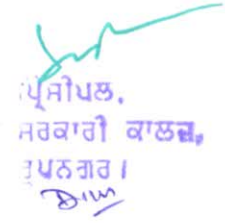 ਪ੍ਰਿੰਸੀਪਲ,
ਸਰਕਾਰੀ ਕਾਲਜ,
ਰੂਪਨਗਰ।